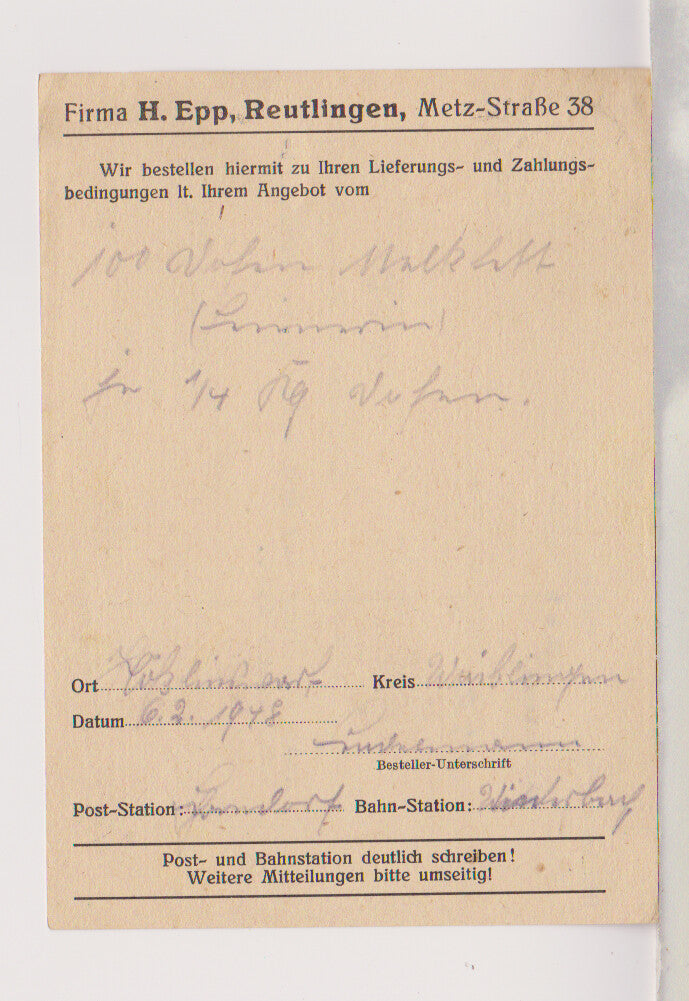 Firma H. Epp, Reutlingen, Metz-Straße 38
Wir bestellen hiermit zu Ihren Lieferungs- und Zahlungs-
bedingungen lt. Ihrem Angebot vom
100 Dosen Melkfett
je 1/4 Kg Dosen.
Ort Kreis Waiblingen
Datum 6.2.1948
Besteller-Unterschrift
Post-Station: Bahn-Station: Winterbach
Post- und Bahnstation deutlich schreiben!
Weitere Mitteilungen bitte umseitig!